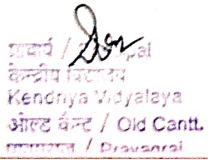 प्राचार्य / pal
केन्द्रीय विद्यालय
Kendriya Vidyalaya
ओल्ड कैन्ट / Old Cantt.
/ Prayagraj